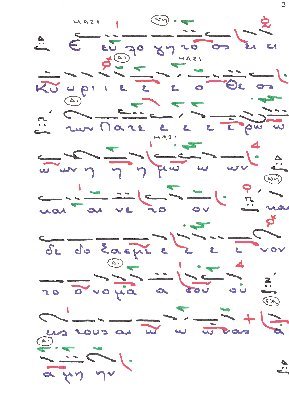 ΜΑΖΙ
Ε ευ λο γη το ος ει ει
ΜΑΖΙ
Κυ υ ρι ι ε ε ε ο Θε ος
των Πα τε ε ε ε ε ρω ω
ΜΑΖΙ
ω ων η η η μω ω ων
και αι νε το ον και
δε δο ξασμε ε ε ε ε νον
το ο νο μα α σου ου
εις τους αι ω ω ω νας α
α μη ην